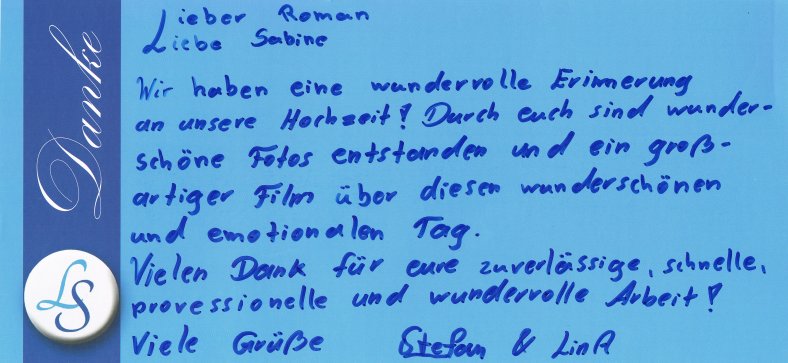 Danke
LS
Lieber Roman
Liebe Sabine
Wir haben eine wundervolle Erinnerung
an unsere Hochzeit! Durch euch sind wunder-
schöne Fotos entstanden und ein groß-
artiger Film über diesen wunderschönen
und emotionalen Tag.
Vielen Dank für eure zuverlässige, schnelle,
provessionelle und wundervolle Arbeit!
Viele Grüße Stefan & LinA